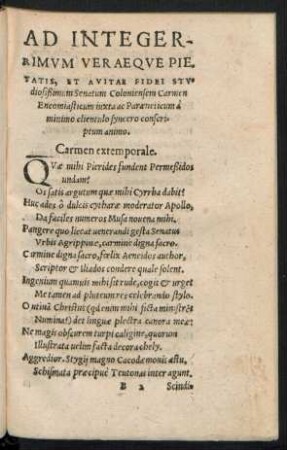 AD INTEGER-
RIMVM VERAEQVE PIE
TATIS, ET AVITAE FIDEI STV
diosissimum Senatum Coloniensem Carmen
Encomiasticum iuxta ac Paræneticum à
minimo clientulo syncero conscri-
ptum animo.
Carmen extemporale.
QVæ mihi Pierides fundent Permeßidos
undam?
Os satis argutum quæ mihi Cyrrha dabit?
Huc ades ô dulcis cytharæ moderator Apollo,
Da faciles numeros Musa nouena mihi.
Pangere quo liceat uenerandi gesta Senatus
Vrbis Agrippinæ, carmine digna sacro.
Carmine digna sacro, fœlix Aeneidos author,
Scriptor & Iliados condere quale solent.
Ingenium quamuis mihi sit rude, cogit & urget
Me tamen ad pluteum res celebranda stylo.
O utinã Christus (quẽ enim mihi ficta ministrẽt
Numina?) det linguæ plectra canora meæ:
Ne magis obscurem turpi caligine, quorum
Illustrata uelim facta decora chely.
Aggredior. Stygij magno Cacodæmonis æstu,
Schismata præcipuè Teutonas inter agunt.
B 2 Scindi-